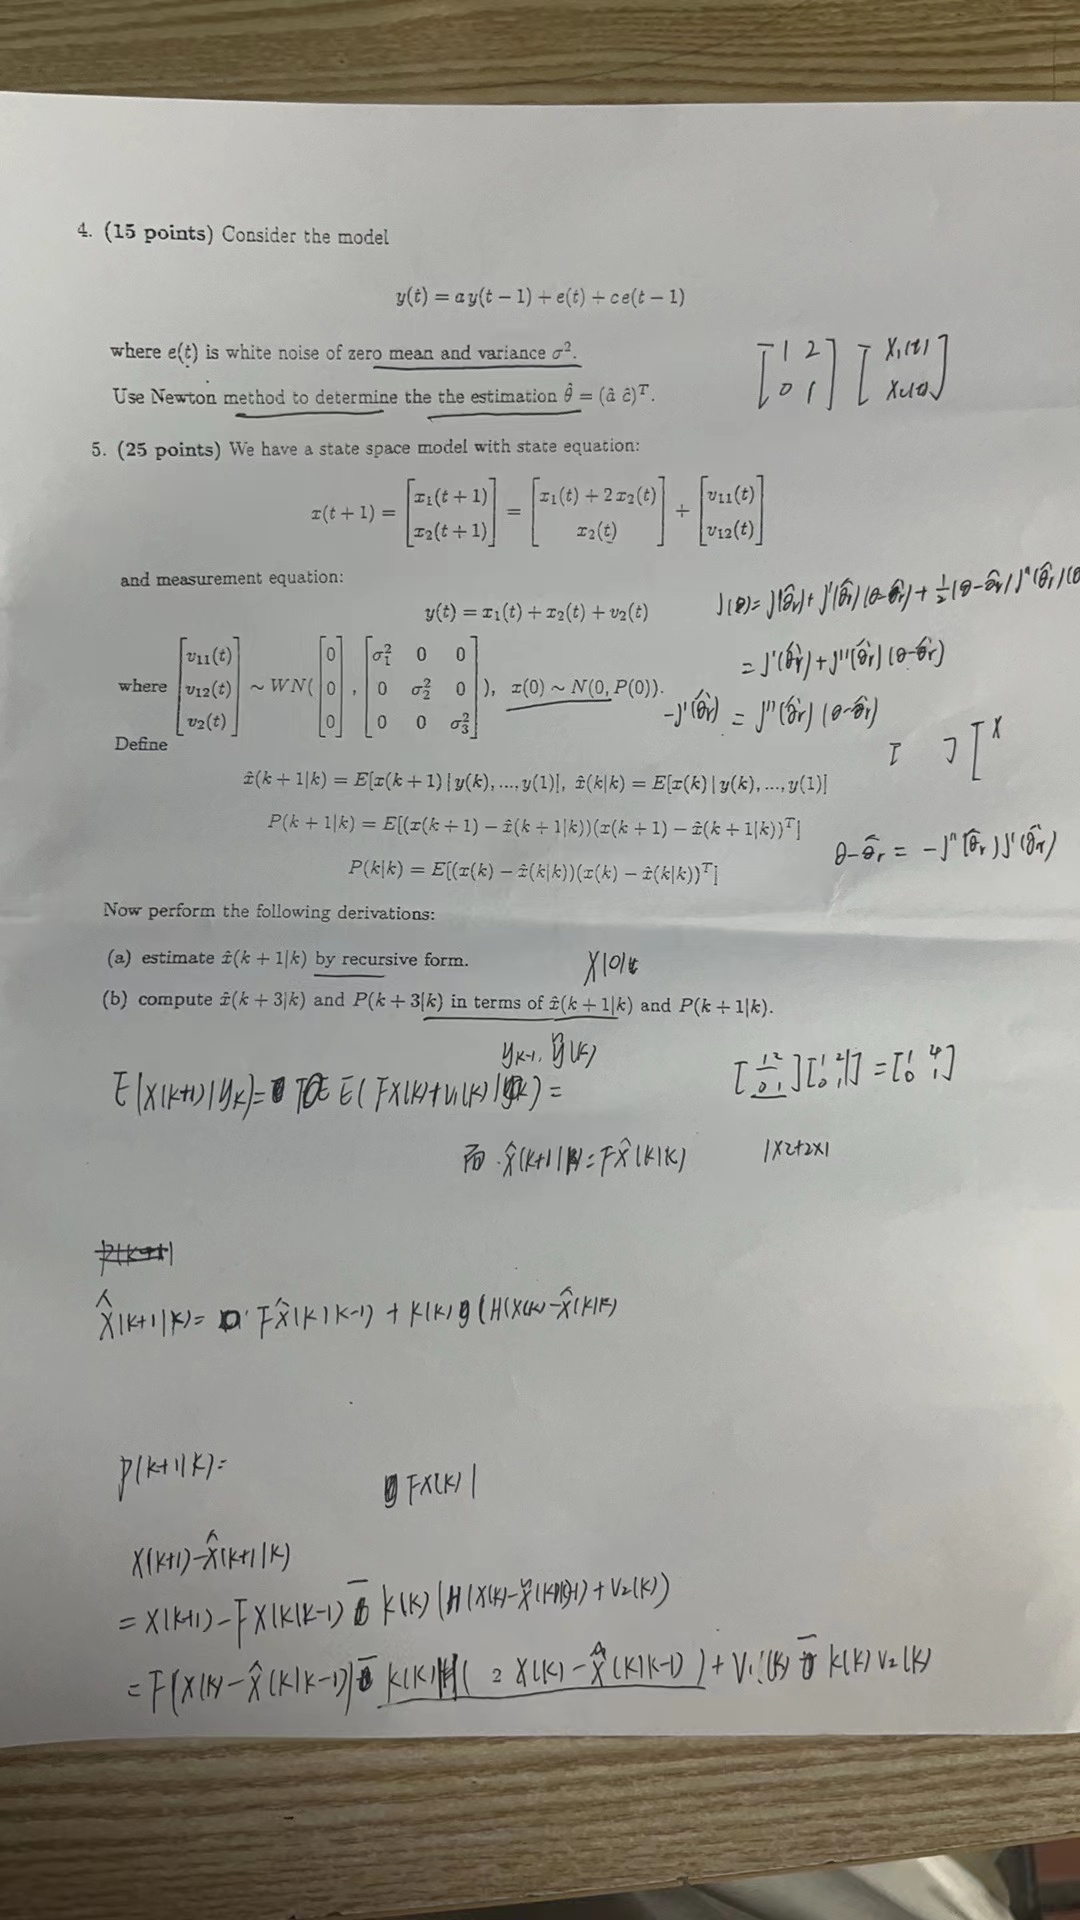 4. (15 points) Consider the model
y(t) = ay(t − 1) + e(t) + ce(t − 1)
where e(t) is white noise of zero mean and variance σ².
Use Newton method to determine the the estimation θ̂ = (â ĉ)ᵀ.
[1 2; 0 1]
5. (25 points) We have a state space model with state equation:
x(t + 1) = [x₁(t + 1); x₂(t + 1)] = [x₁(t) + 2x₂(t); x₂(t)] + [v₁₁(t); v₁₂(t)]
and measurement equation:
y(t) = x₁(t) + x₂(t) + v₂(t)
J(θ) = J(θ̂r) + J'(θ̂r)(θ-θ̂r) + ½(θ-θ̂r)J''(θ̂r)(θ
= J'(θ̂r) + J''(θ̂r)(θ-θ̂r)
where [v₁₁(t); v₁₂(t); v₂(t)] ~ WN([0; 0; 0], [σ₁² 0 0; 0 σ₂² 0; 0 0 σ₃²]), x(0) ~ N(0, P(0)).
-J'(θ̂r) = J''(θ̂r)(θ-θ̂r)
Define
x̂(k + 1|k) = E[x(k + 1) | y(k), ..., y(1)], x̂(k|k) = E[x(k) | y(k), ..., y(1)]
P(k + 1|k) = E[(x(k + 1) − x̂(k + 1|k))(x(k + 1) − x̂(k + 1|k))ᵀ]
θ-θ̂r = -J''(θ̂r)J'(θ̂r)
P(k|k) = E[(x(k) − x̂(k|k))(x(k) − x̂(k|k))ᵀ]
Now perform the following derivations:
(a) estimate x̂(k + 1|k) by recursive form.
(b) compute x̂(k + 3|k) and P(k + 3|k) in terms of x̂(k + 1|k) and P(k + 1|k).
[1 2; 0 1][1 2; 0 1] = [1 4; 0 1]
E(X(k+1)|yk) = E(FX(k)+V₁(k)|
而 X̂(k+1|k) = FX̂(k|k)
1×2+2×1
X̂(k+1|k) = FX̂(k|k-1) + K(k) (H(X(k)-X̂(k|k)
P(k+1|k)=
FX(k)|
X(k+1)-X̂(k+1|k)
= X(k+1)-FX(k|k-1) - K(k)(H(X(k)-X̂(k|k-1)+V₂(k))
= F(X(k)-X̂(k|k-1)) - K(k)H( X(k)-X̂(k|k-1)) + V₁(k) - K(k)V₂(k)